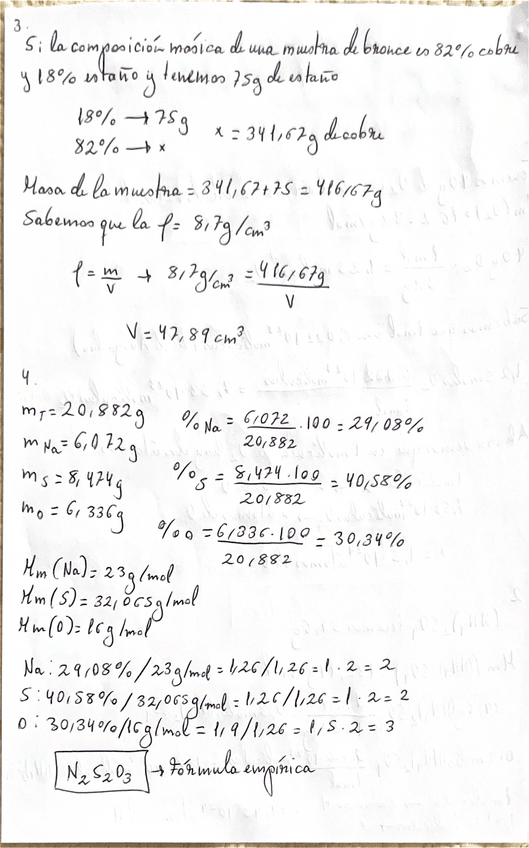 3.
Si la composición másica de una muestra de bronce es 82% cobre
y 18% estaño y tenemos 75g de estaño
18% → 75g
82% → x
x = 341,67g de cobre
Masa de la muestra = 341,67+75 = 416,67g
Sabemos que la ρ = 8,7g/cm³
ρ = m/V → 8,7g/cm³ = 416,67g/V
V = 47,89 cm³
4.
mT = 20,882g
mNa = 6,072g
mS = 8,474g
mO = 6,336g
%Na = 6,072/20,882 · 100 = 29,08%
%S = 8,474·100/20,882 = 40,58%
%O = 6,336·100/20,882 = 30,34%
Mm (Na) = 23g/mol
Mm (S) = 32,065g/mol
Mm (O) = 16g/mol
Na: 29,08% / 23g/mol = 1,26/1,26 = 1 · 2 = 2
S: 40,58% / 32,065g/mol = 1,26/1,26 = 1 · 2 = 2
O: 30,34% / 16g/mol = 1,9/1,26 = 1,5 · 2 = 3
N₂S₂O₃ → Fórmula empírica